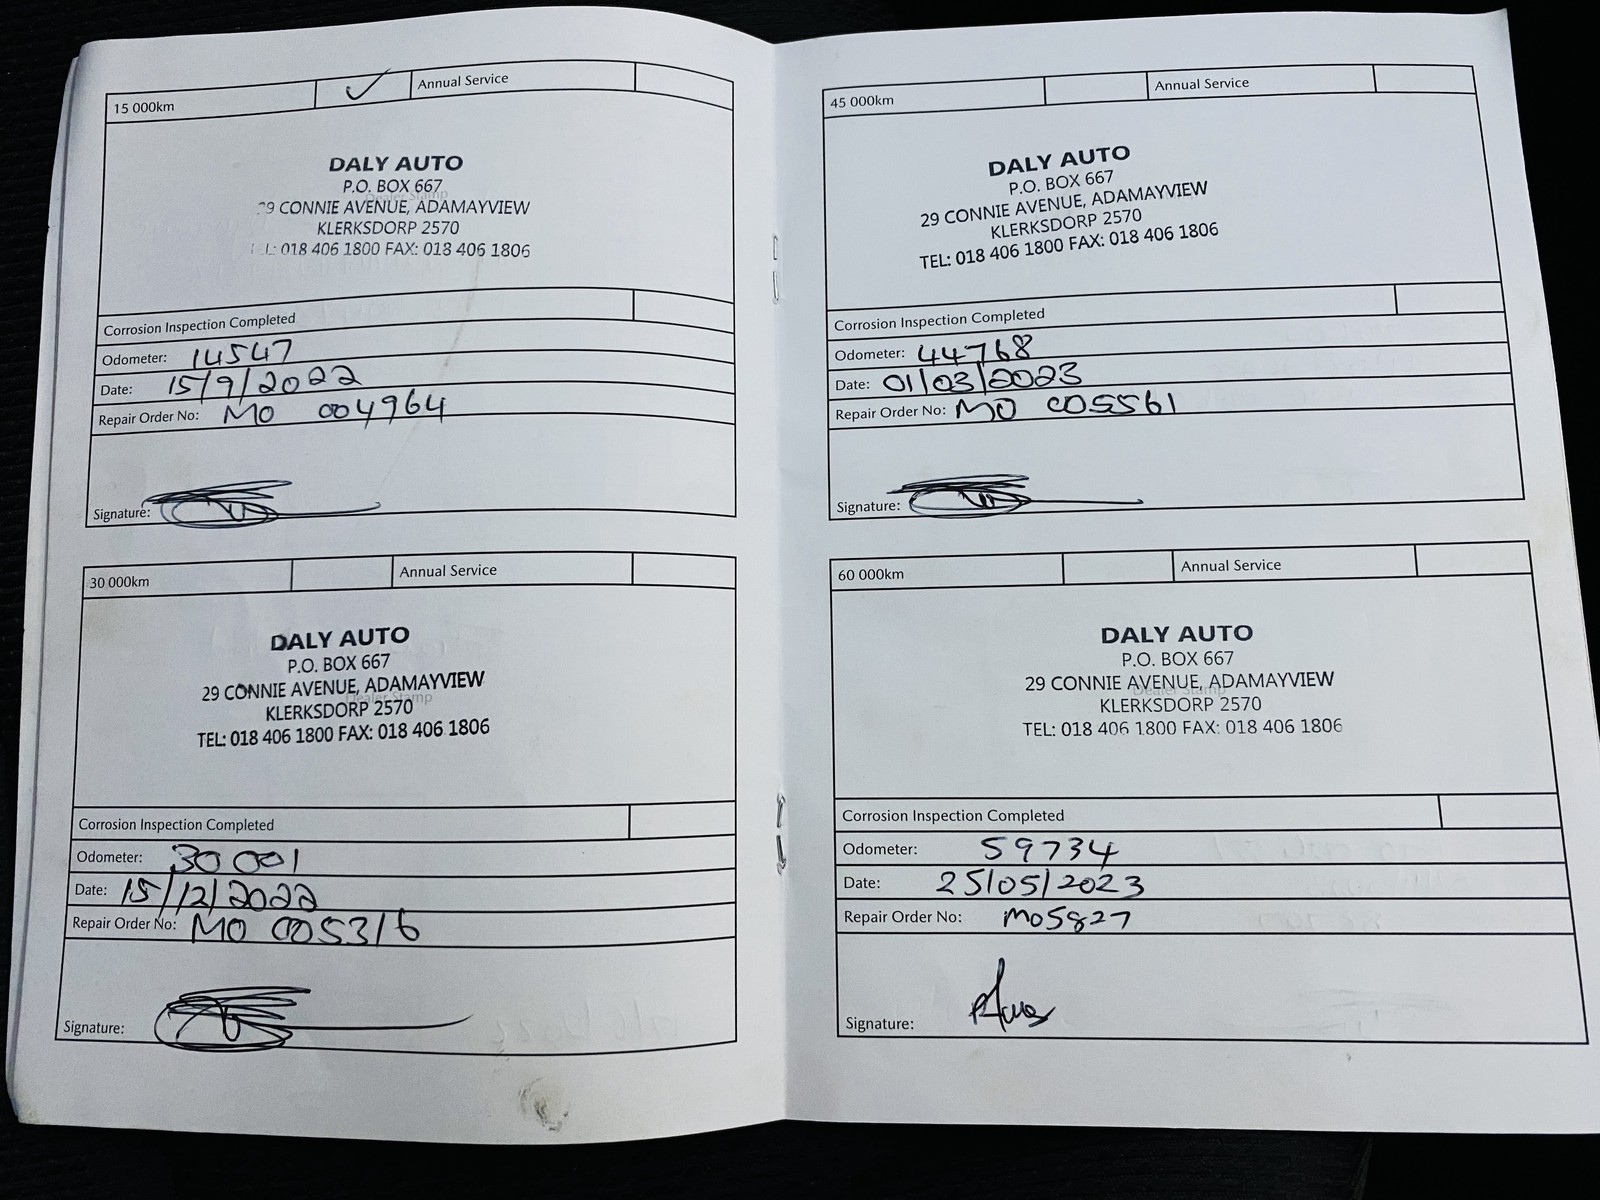 15 000km Annual Service
DALY AUTO
P.O. BOX 667
Dealer Stamp
29 CONNIE AVENUE, ADAMAYVIEW
KLERKSDORP 2570
TEL: 018 406 1800 FAX: 018 406 1806
Corrosion Inspection Completed
Odometer: 14547
Date: 15/9/2022
Repair Order No: MO 004964
Signature:
30 000km Annual Service
DALY AUTO
P.O. BOX 667
29 CONNIE AVENUE, ADAMAYVIEW
Dealer Stamp
KLERKSDORP 2570
TEL: 018 406 1800 FAX: 018 406 1806
Corrosion Inspection Completed
Odometer: 30 001
Date: 15/12/2022
Repair Order No: MO 005316
Signature:
45 000km Annual Service
DALY AUTO
P.O. BOX 667
29 CONNIE AVENUE, ADAMAYVIEW
KLERKSDORP 2570
TEL: 018 406 1800 FAX: 018 406 1806
Corrosion Inspection Completed
Odometer: 44768
Date: 01/03/2023
Repair Order No: MO 005561
Signature:
60 000km Annual Service
DALY AUTO
P.O. BOX 667
29 CONNIE AVENUE, ADAMAYVIEW
Dealer Stamp
KLERKSDORP 2570
TEL: 018 406 1800 FAX: 018 406 1806
Corrosion Inspection Completed
Odometer: 59734
Date: 25/05/2023
Repair Order No: MO5827
Signature: